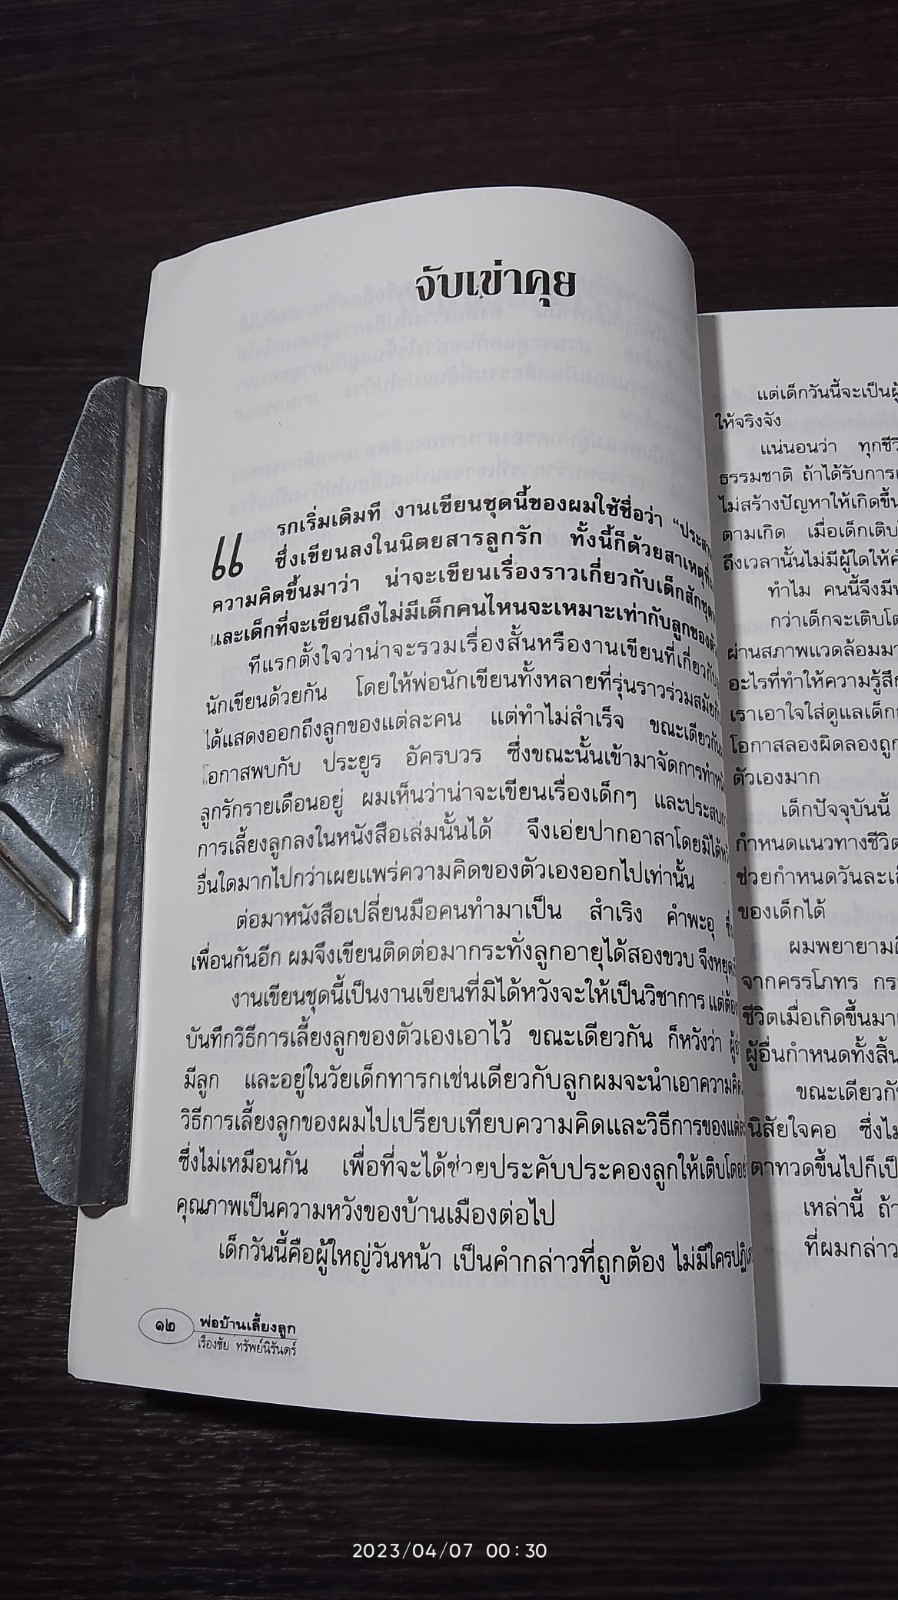 จับเข่าคุย
แรกเริ่มเดิมที งานเขียนชุดนี้ของผมใช้ชื่อว่า
ซึ่งเขียนลงในนิตยสารลูกรัก ทั้งนี้ก็ด้วยสาเหตุ
ความคิดขึ้นมาว่า น่าจะเขียนเรื่องราวเกี่ยวกับเด็กสัก
และเด็กที่จะเขียนถึงไม่มีเด็กคนไหนจะเหมาะเท่ากับลูกของ
ทีแรกตั้งใจว่าน่าจะรวมเรื่องสั้นหรืองานเขียนที่เกี่ยวกับ
นักเขียนด้วยกัน โดยให้พ่อนักเขียนทั้งหลายที่รุ่นราวร่วมสมัย
ได้แสดงออกถึงลูกของแต่ละคน แต่ทำไม่สำเร็จ ขณะเดียวกัน
โอกาสพบกับ ประยูร อัครบวร ซึ่งขณะนั้นเข้ามาจัดการทำ
ลูกรักรายเดือนอยู่ ผมเห็นว่าน่าจะเขียนเรื่องเด็กๆ และ
การเลี้ยงลูกลงในหนังสือเล่มนั้นได้ จึงเอ่ยปากอาสาโดยมิได้
อื่นใดมากไปกว่าเผยแพร่ความคิดของตัวเองออกไปเท่านั้น
ต่อมาหนังสือเปลี่ยนมือคนทำมาเป็น สำเริง คำพะอุ
เพื่อนกันอีก ผมจึงเขียนติดต่อมากระทั่งลูกอายุได้สองขวบ จึงหยุด
งานเขียนชุดนี้เป็นงานเขียนที่มิได้หวังจะให้เป็นวิชาการ แต่
บันทึกวิธีการเลี้ยงลูกของตัวเองเอาไว้ ขณะเดียวกัน ก็หวังว่า
มีลูก และอยู่ในวัยเด็กทารกเช่นเดียวกับลูกผมจะนำเอาความคิด
วิธีการเลี้ยงลูกของผมไปเปรียบเทียบความคิดและวิธีการของ
ซึ่งไม่เหมือนกัน เพื่อที่จะได้ช่วยประคับประคองลูกให้เติบโต
คุณภาพเป็นความหวังของบ้านเมืองต่อไป
เด็กวันนี้คือผู้ใหญ่วันหน้า เป็นคำกล่าวที่ถูกต้อง ไม่มีใคร
๑๒ พ่อบ้านเลี้ยงลูก
เรืองชัย ทรัพย์นิรันดร์
แต่เด็กวันนี้จะเป็น
ให้จริงจัง
แน่นอนว่า
ธรรมชาติ ถ้าได้รับการ
ไม่สร้างปัญหาให้เกิดขึ้น
ตามเกิด เมื่อเด็ก
ถึงเวลานั้นไม่มีผู้ใดให้
ทำไม คนนี้จึง
กว่าเด็กจะเติบโต
ผ่านสภาพแวดล้อม
อะไรที่ทำให้ความรู้สึก
เราเอาใจใส่ดูแลเด็ก
โอกาสลองผิดลองถูก
ตัวเองมาก
เด็กปัจจุบันนี้
กำหนดแนวทางชีวิต
ช่วยกำหนดวันละ
ของเด็กได้
ผมพยายาม
จากครรโภทร
ชีวิตเมื่อเกิดขึ้นมา
ผู้อื่นกำหนดทั้งสิ้น
ขณะเดียวกัน
นิสัยใจคอ
ตาทวดขึ้นไปก็
เหล่านี้ ถ้า
ที่ผมกล่าว
2023/04/07 00:30